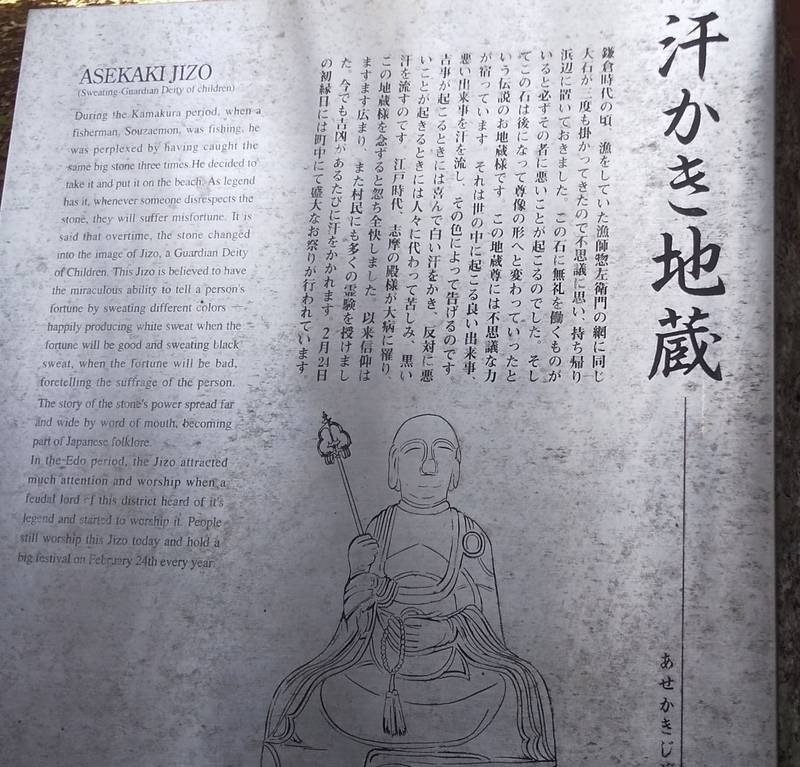 汗かき地蔵
あせかきじ
鎌倉時代の頃 漁をしていた漁師惣左衛門の網に同じ
大石が三度も掛かってきたので不思議に思い、持ち帰り
浜辺に置いておきました。この石に無礼を働くものが
いると必ずその者に悪いことが起こるのでした。そし
てこの石は後になって尊像の形へと変わっていったと
いう伝説のお地蔵様です。この地蔵尊には不思議な力
が宿っています それは世の中に起こる良い出来事、
悪い出来事を汗を流し、その色によって告げるのです。
吉事が起こるときには喜んで白い汗をかき、反対に悪
いことが起きるときには人々に代わって苦しみ、黒い
汗を流すのです 江戸時代、志摩の殿様が大病に罹り
この地蔵様を念ずると忽ち全快しました。以来信仰は
ますます広まり、また村民にも多くの霊験を授けまし
た。今でも吉凶があるたびに汗をかかれます。2月24日
の初縁日には町中にて盛大なお祭りが行われています。
ASEKAKI JIZO
(Sweating-Guardian Deity of children)
During the Kamakura period, when a
fisherman, Souzaemon, was fishing, he
was perplexed by having caught the
same big stone three times.He decided to
take it and put it on the beach. As legend
has it, whenever someone disrespects the
stone, they will suffer misfortune. It is
said that overtime, the stone changed
into the image of Jizo, a Guardian Deity
of Children. This Jizo is believed to have
the miraculous ability to tell a person's
fortune by sweating different colors
happily producing white sweat when the
fortune will be good and sweating black
sweat, when the fortune will be bad,
foretelling the suffrage of the person.
The story of the stone's power spread far
and wide by word of mouth, becoming
part of Japanese folklore.
In the Edo period, the Jizo attracted
much attention and worship when a
feudal lord of this district heard of it's
legend and started to worship it. People
still worship this Jizo today and hold a
big festival on February 24th every year.